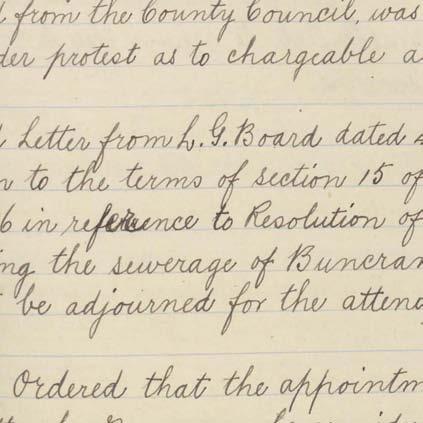 from the County Council, was
der protest as to chargeable a
Letter from L. G. Board dated 4
n to the terms of section 15 of
6 in reference to Resolution of
ing the sewerage of Buncran
be adjourned for the attend
Ordered that the appointm